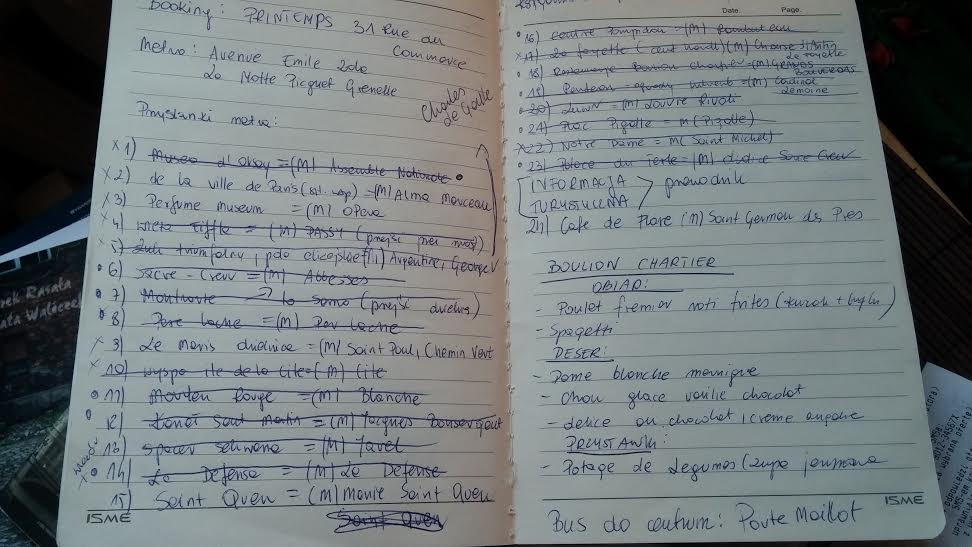 Booking: PRINTEMPS 31 Rue du
Commerce
Metro: Avenue Emile Zola
La Motte Picquet Grenelle
Charles
de Golle
Przystanki metra:
x 1) Museo d'orsay = (M) Assemble Nationale
x 2) de la ville de Paris = (M) Alma Marceau
x 3) Perfume museum = (M) Opera
x 4) wieża Eiffla = (M) PASSY (przejść przez most)
x 5) Łuk triumfalny, Argentine, George V
6) Sacre-Creur = (M) Abbesses
7) Montmarte → to samo (przejść dzielnią)
8) Pere lache = (M) Per Lache
x 9) Le Maris dzielnica = (M) Saint Paul, Chemin Vert
x 10) wyspa ile de la Cite = (M) Cite
11) Moulen Rouge = (M) Blanche
12) Kanał saint Martin = (M) Jacques Bonsergent
13) spacer sekwana = (M) Javel
14) La Defense = (M) La Defense
15) Saint Quen = (M) Marie Saint Quen
Saint Quen
ISME
Date. Page.
16) Centre Pompidou = (M) Rambuteau
x 17) La fayette (M) Chausse d'Antin
La Fayette
18) Restauracja Boulion chartier = (M) GRANDS
BOULVERDAS
19) Panteon = (M) Cardinal
Lemoine
20) Luwr = (M) Louvre Rivoli
21) Plac Pigalle = M (Pigalle)
x 22) Notre Dame = M (Saint Michel)
23) Place du Terte =
INFORMACJA
TURYSTYCZNA
przewodnik
24) Cafe de Flore (M) Saint German des Pres
BOULION CHARTIER
OBIAD:
- Poulet fremier roti frites
- Spagetti
DESER:
- Dame blanche
- Chou glace vanilie chocolat
- delice au chocolat, creme anglaise
PRZYSTAWKI:
- Potage de Legumes (zupa jarzynowa
ISME
Bus do centrum: Porte Maillot